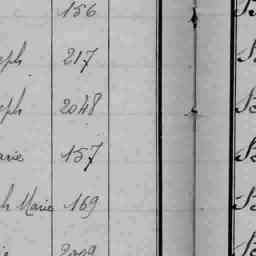 156
eph 217
eph 2048
arie 157
h Marie 169
ie 2009